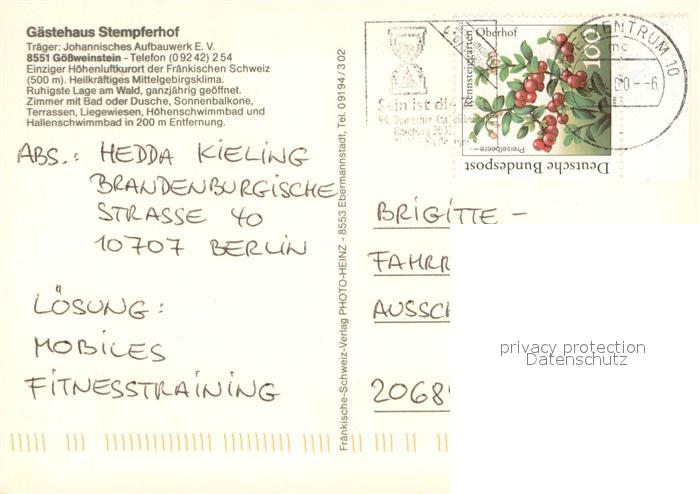 Gästehaus Stempferhof
Träger: Johannisches Aufbauwerk E. V.
8551 Gößweinstein - Telefon (0 92 42) 2 54
Einziger Höhenluftkurort der Fränkischen Schweiz
(500 m). Heilkräftiges Mittelgebirgsklima.
Ruhigste Lage am Wald, ganzjährig geöffnet.
Zimmer mit Bad oder Dusche, Sonnenbalkone,
Terrassen, Liegewiesen, Höhenschwimmbad und
Hallenschwimmbad in 200 m Entfernung.
ABS.: HEDDA KIELING
BRANDENBURGISCHE
STRASSE 40
10707 BERLIN
LÖSUNG:
MOBILES
FITNESSTRAINING
Fränkische-Schweiz-Verlag PHOTO-HEINZ - 8553 Ebermannstadt, Tel. 09194 / 3 02
Sein ist die
94. Deutscher
Hamburg 2000
Rennsteiggarten Oberhof
100
Preiselbeere
Deutsche Bundespost
ZENTRUM 10
mc
00 --6
BRIGITTE -
FAHRR
AUSSCH
2068
privacy protection
Datenschutz